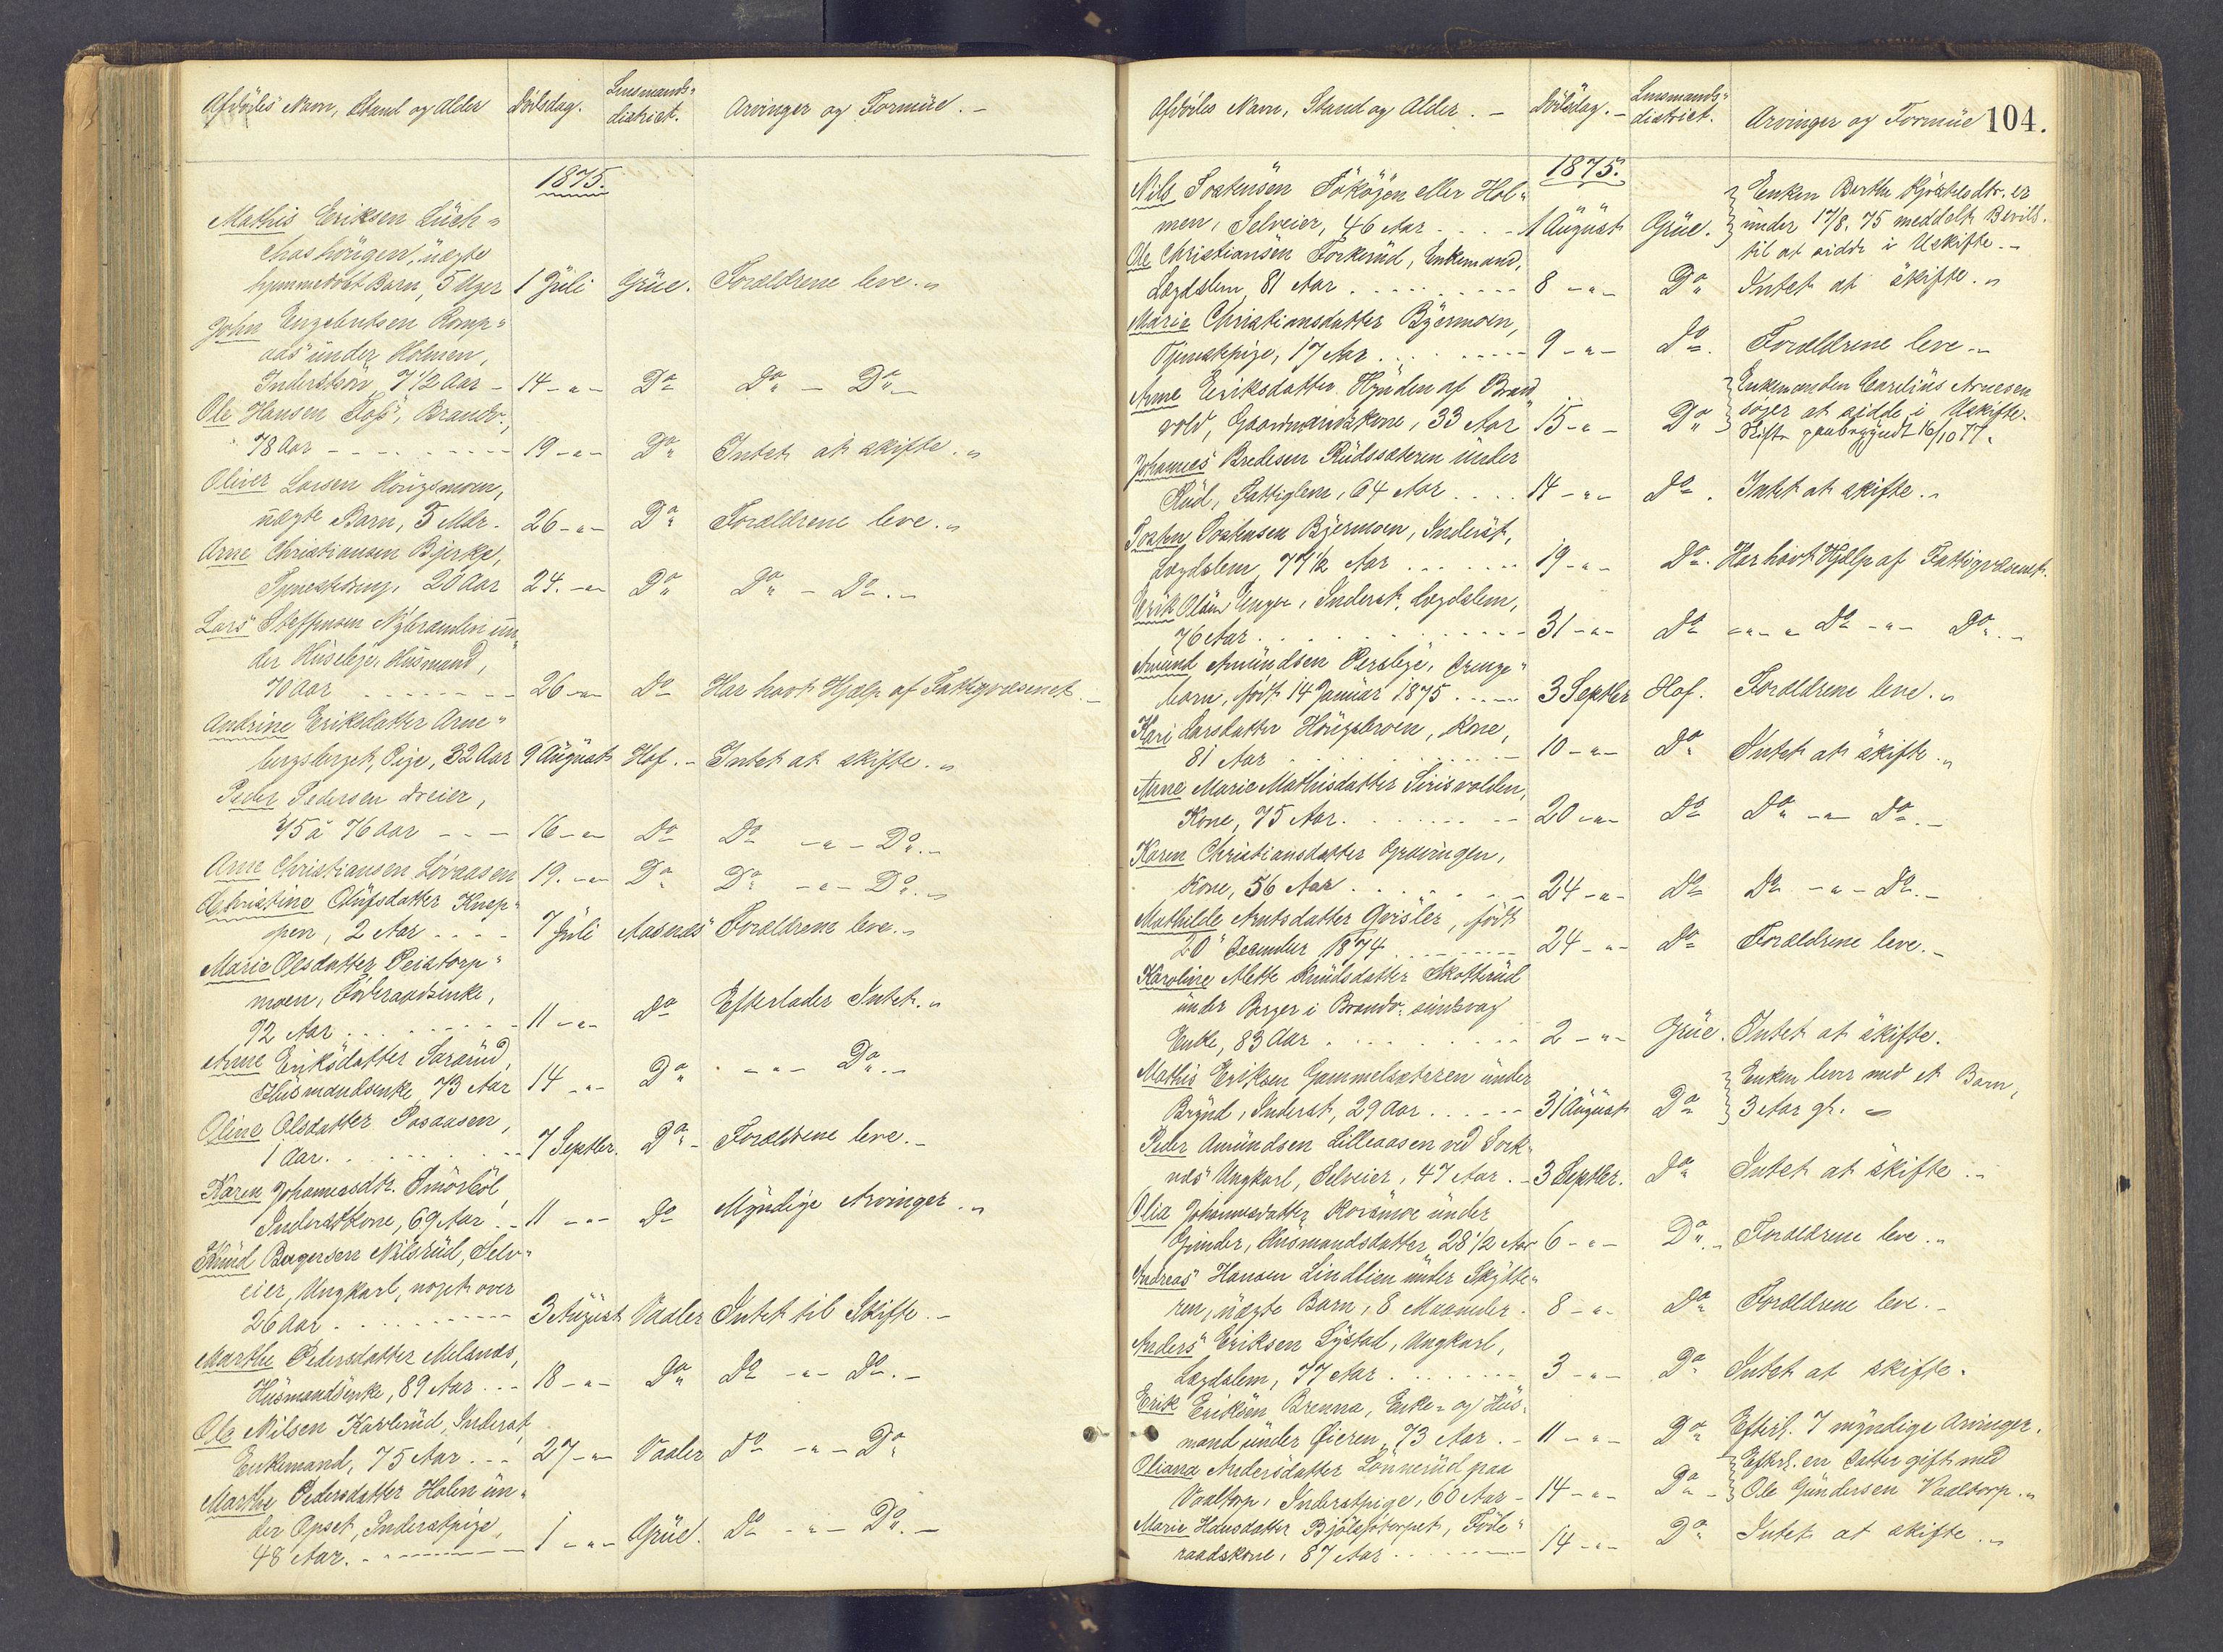 Afdödes Navn, Stand og Alder Dödsdag. Lensmands-
district. Arvinger og Formue.
1875.
Mathis Eriksen Lüch-
uægte
hjemmedöbt Barn, 5 Uger 1 Juli Grue. Forældrene leve.
John Engebretsen Romp-
aas under Holmen,
Inderstsön, 7 1/2 Aar - 14 - " - Do Do - Do
Ole Hansen Tofs, Brandv.,
78 Aar - - - 19 - " - Do Intet at skifte.
Oliver Larsen Hougsmoen,
uægte Barn, 5 Mdr. 26 - " - Do Forældrene leve.
Arne Christiansen Bjerke,
Tjenestedreng, 20 Aar 24. - " - Do Do - Do. -
Lars Steffensen Nÿbraaten un-
der Huseby, Husmand,
70 Aar . . . 26 - " - Do Har havt Hjælp af Fattigvæsenet.
Andrine Eriksdatter Arne-
bergsberget, Pige, 32 Aar 9 August Hof. - Intet at skifte.
Peder Pedersen Dreier,
75 à 76 Aar - - - 16 - " - Do Do - " - Do. -
Arne Christiansen Lövaasen 19. - " - Do Do - " - Do. -
Christine Olufsdatter Knap-
pen, 2 Aar . . . 7 Juli Aasnes Forældrene leve.
Marie Olsdatter Peistorp-
moen, Föderaadsenke,
92 Aar . . . 11 - " - Do Efterlader Intet.
Anne Eriksdatter Sararud,
Husmandsenke, 73 Aar 14 - " - Do - " - Do. -
Oline Olsdatter Posaasen,
1 Aar . . . 7 Septbr. Do - Forældrene leve. -
Karen Johannesdtr. Smörböl,
Inderstkone, 69 Aar. - 11 - " - Do Myndige Arvinger.
Knud Bergersen Nilsrud, Selv-
eier, Ungkarl, noget over
26 Aar . . . 3 August Vaaler Intet til Skifte. -
Marthe Pedersdatter Melands,
Husmandsenke, 89 Aar . . - 18 - " - Do Do - " - Do. -
Ole Nilsen Karlsrud, Inderst,
Enkemand, 75 Aar . . - 27 - " - Vaaler Do - " - Do
Marthe Pedersdatter Holen un-
der Opset, Inderstpige,
48 Aar. - - - 1 - " - Grue. Do - " - Do. -
Afdödes Navn, Stand og Alder. - Dödsdag. - Lensmands-
district. Arvinger og Formue 104.
1875.
Nils Tostensen Tököjen eller Hol-
men, Selveier, 46 Aar . . . 1 August Grue.
Enken Berthe Kjölstadtr. er
under 17/8. 75 meddelt Bevill.
til at sidde i Uskifte. -
Ole Christiansen Forkerud, Enkemand,
Lægdslem, 81 Aar . . . 8 - " - Do Intet at skifte.
Marie Christiansdatter Byermoen,
Tjenestepige, 17 Aar . . . 9 - " - Do. Forældrene leve
Anne Eriksdatter Hynden af Brand-
vold, Gaardmandskone, 33 Aar 15 - " - Do
Enkemanden Carelius Arnesen
søger at sidde i Uskifte.
Skifte paabegyndt 16/10 77.
Johannes Bredesen Rudssæteren under
Rud, Fattiglem, 64 Aar . . . 14 - " - Do. Intet at skifte.
Posten Tostensen Bjermoen, Inderst,
Lægdslem, 77 1/2 Aar . . . 19 - " - Do. Har havt Hjælp af Fattigvæsenet.
Erik Olsen Unger, Inderst, Lægdslem,
76 Aar . . . 31 - " - Do - " - Do - " - Do. -
Amund Amundsen Persbye, Drenge-
barn, födt 14 Januar 1875 . . . 3 Septbr Hof. Forældrene leve.
Kari Larsdatter Hougsbroen, Kone,
81 Aar . . . 10 - " - Do Intet at skifte.
Anne Marie Mathisdatter Sirisvolden,
Kone, 75 Aar . . . 20 - " - Do Do - " - Do. -
Karen Christiansdatter Gravingen,
Kone, 56 Aar . . . 24 - " - Do Do - " - Do. -
Mathilde Arntsdatter Gvisler, födt
20 December 1874 . . . 24 - " - Do Forældrene leve. -
Karoline Mette Knudsdatter Skotterud
under Berger i Brandv. sindsvag
Enke, 83 Aar . . . 2 - " - Grue. Intet at skifte.
Mathis Eriksen Gammelsæteren under
Brynd, Inderst, 29 Aar . . . 31 August Do
Enken lever med et Barn,
3 Aar gl.
Peder Amundsen Lilleaasen ved Sork-
næs Ungkarl, Selveier, 47 Aar. - 3 Septbr. Do Intet at skifte. -
Olia Johannesdatter Roismoe under
Grinder, Husmandsdatter, 28 1/2 Aar 6 - " - Do. - Forældrene leve.
Andreas Hansen Lindlien under Skytte-
ren, uægte Barn, 8 Maaneder. 8 - " - Do Forældrene leve. -
Anders Eriksen Lystad, Ungkarl,
Lægdslem, 77 Aar . . . 3 - " - Do Intet at skifte.
Erik Eriksen Brenna, Enke- og Hus-
mand under Öieren, 73 Aar. - 11 - " - Do Efterl. 7 myndige Arvinger.
Oliana Andersdatter Lönnerud paa
Vaaltorp, Inderstpige, 60 Aar - 14 - " - Do -
Efterl. en Datter gift med
Ole Gundersen Vaaltorp.
Marie Hansdatter Bjölsetorpet, Föde-
raadskone, 87 Aar . . . 14 - " - Do Intet at skifte.